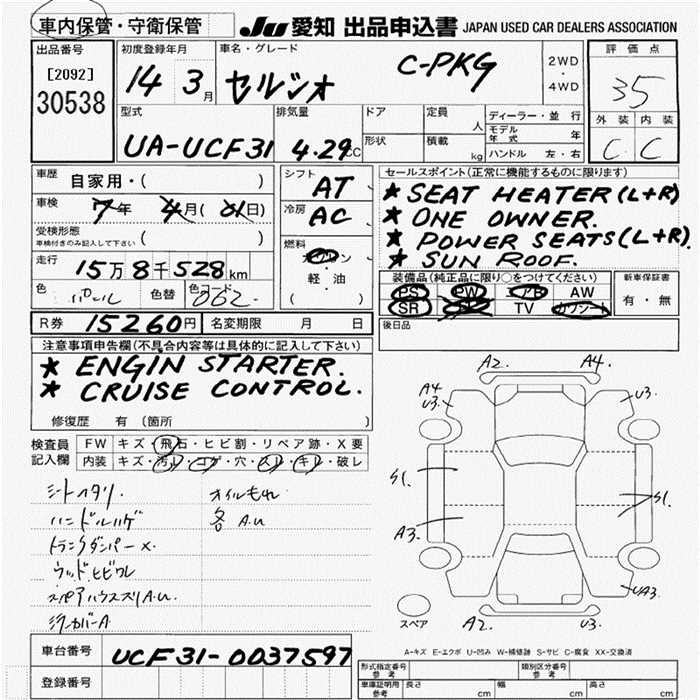 車内保管・守衛保管 JU 愛知 出品申込書 JAPAN USED CAR DEALERS ASSOCIATION
出品番号 初度登録年月 車名・グレード 評価点
[2092] 14 3月 セルシオ C-PKG 2WD・4WD 35
30538 型式 排気量 ドア 定員 人 ディーラー・並行 外装 内装
UA-UCF31 4.29CC 形状 積載 kg モデル年式 年 C C
ハンドル 左・右
車歴 自家用・( ) シフト AT セールスポイント(正常に機能するものに限ります)
車検 7年 4月( 01日) 冷房 AC ★ SEAT HEATER(L+R)
受検形態 ( ) ★ ONE OWNER.
車検付きのみ記入して下さい 燃料 ガソリン・軽油 ( ) ★ POWER SEATS(L+R).
走行 15万8千528km ★ SUN ROOF.
色 パール 色替 色コード 062 装備品(純正品に限り○をつけてください) 新車保証書
PS PW AW 有・無
SR TV
R券 15260円 名変期限 月 日 後日品
注意事項申告欄(不具合内容等は具体的に記入して下さい)
★ ENGIN STARTER.
★ CRUISE CONTROL.
修復歴 有 (箇所 )
検査員記入欄 FW キズ・飛石・ヒビ割・リペア跡・X要
内装 キズ・汚レ・コゲ・穴・スレ・キレ・破レ
シートヘタリ. オイルもれ
ハンドルハゲ 各 A.U
トランクダンパー×.
ウッドヒビワレ
スペアハウススリA.U.
A2. A4.
A4 U3. U3.
S1. S1.
A3.
UA3.
スペア A2. U3.
A-キズ E-エクボ U-凹み W-補修跡 S-サビ C-腐食 XX-交換済
車台番号 UCF31-0037597
登録番号
型式指定番号 参考 類別区分番号 参考
車庫証明用 参考 長さ cm 幅 cm 高さ cm